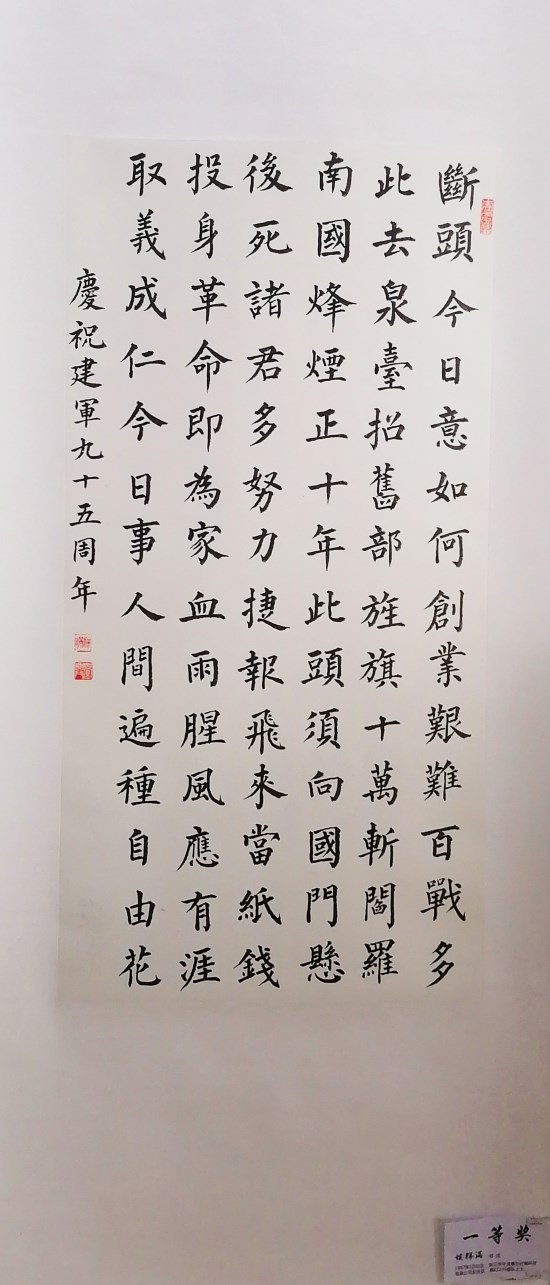 斷頭今日意如何創業艱難百戰多
此去泉臺招舊部旌旗十萬斬閻羅
南國烽煙正十年此頭須向國門懸
後死諸君多努力捷報飛來當紙錢
投身革命即為家血雨腥風應有涯
取義成仁今日事人間遍種自由花
慶祝建軍九十五周年
一等奖